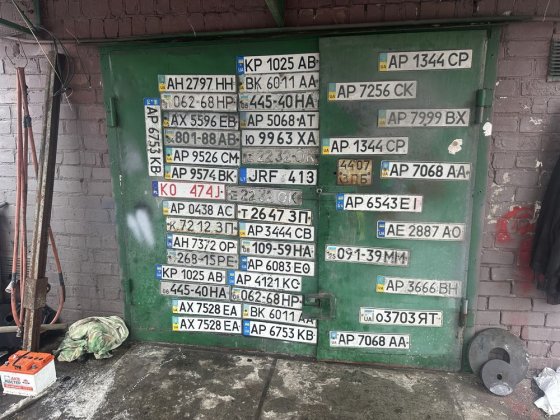 AP 6753 KB
AH 2797 HH
062-68 HP
AX 5596 EB
801-88 AB
AP 9526 CM
AP 9574 BK
KO 474J
AP 0438 AC
72 12 ЗП
AH 7372 OP
268-15 PE
KP 1025 AB
445-40 HA
AX 7528 EA
AX 7528 EA
KP 1025 AB
BK 6011 AA
445-40 HA
AP 5068 AT
Ю 99 63 XA
JRF 413
T 26 47 ЗП
AP 3444 CB
109-59 HA
AP 6083 EO
AP 4121 KC
062-68 HP
BK 6011 AA
AP 6753 KB
AP 1344 CP
AP 7256 CK
AP 7999 BX
AP 1344 CP
4407
ЗПБ
AP 7068 AA
AP 6543 EI
AE 2887 AO
091-39 MM
AP 3666 BH
03703 ЯТ
AP 7068 AA